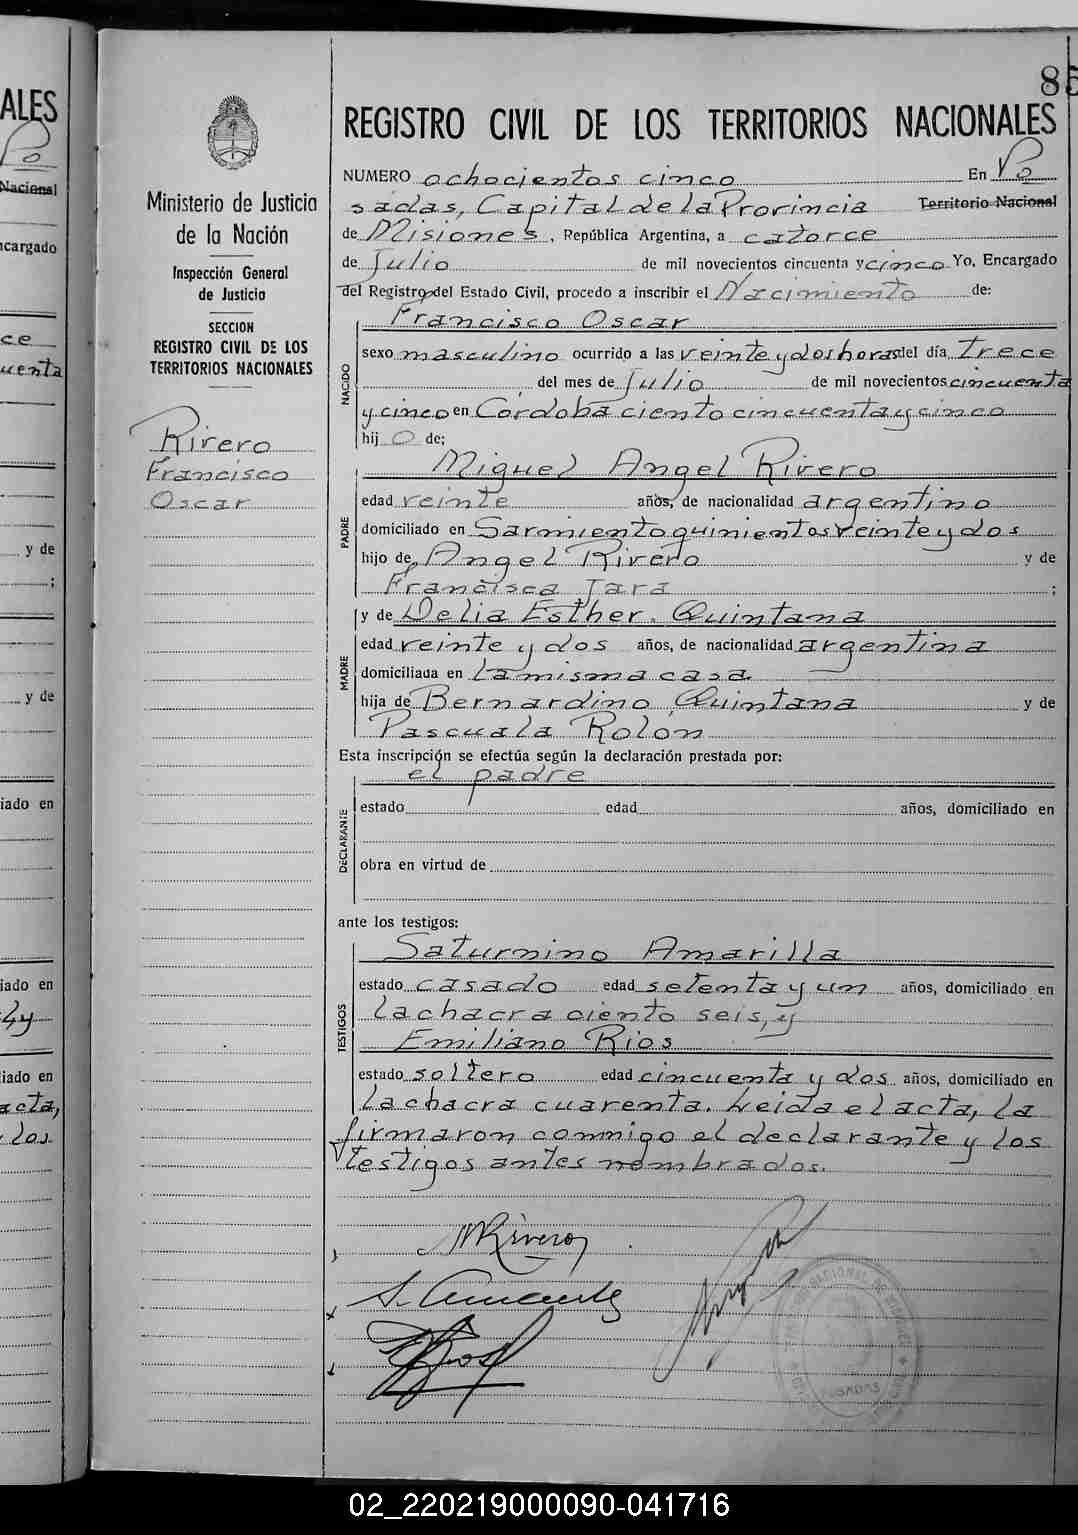 ALES
Po
Nacional
ncargado
ce
uenta
y de
;
y de
iado en
iado en
iado en
acta,
los
85
Ministerio de Justicia
de la Nación
Inspección General
de Justicia
SECCION
REGISTRO CIVIL DE LOS
TERRITORIOS NACIONALES
Rivero
Francisco
Oscar
REGISTRO CIVIL DE LOS TERRITORIOS NACIONALES
NUMERO ochocientos cinco En Po
sadas, Capital de la Provincia Territorio Nacional
de Misiones, República Argentina, a catorce
de Julio de mil novecientos cincuenta y cinco Yo, Encargado
del Registro del Estado Civil, procedo a inscribir el Nacimiento de:
Francisco Oscar
NACIDO
sexo masculino ocurrido a las veinte y dos horas del día trece
del mes de Julio de mil novecientos cincuenta
y cinco en Córdoba ciento cincuenta y cinco
hijo de:
Miguel Angel Rivero
PADRE
edad veinte años, de nacionalidad argentino
domiciliado en Sarmiento quinientos veinte y dos
hijo de Angel Rivero y de
Francisca Jara ;
y de Delia Esther Quintana
MADRE
edad veinte y dos años, de nacionalidad argentina
domiciliada en la misma casa
hija de Bernardino Quintana y de
Pascuala Rolón
Esta inscripción se efectúa según la declaración prestada por:
el padre
DECLARANTE
estado edad años, domiciliado en
obra en virtud de
ante los testigos:
Saturnino Amarilla
TESTIGOS
estado casado edad setenta y un años, domiciliado en
la chacra ciento seis, y
Emiliano Rios
estado soltero edad cincuenta y dos años, domiciliado en
la chacra cuarenta. Leida el acta, la
firmaron conmigo el declarante y los
testigos antes nombrados.
MRivero
POSADAS
02_220219000090-041716